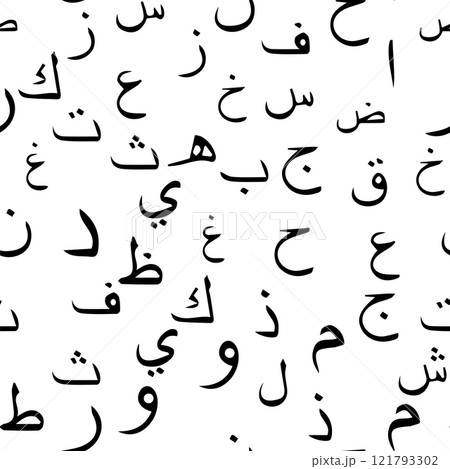 س ز ف ح
ز ا ض
ك ع خ س ض ر
ر ت ث ه ب ج ق خ
غ ي
ن د ظ غ ح ع
ف ك ذ ج ت
ث ي و م ش
ط ر و ل ذ م
PIXTA
pixta.jp - 121793302